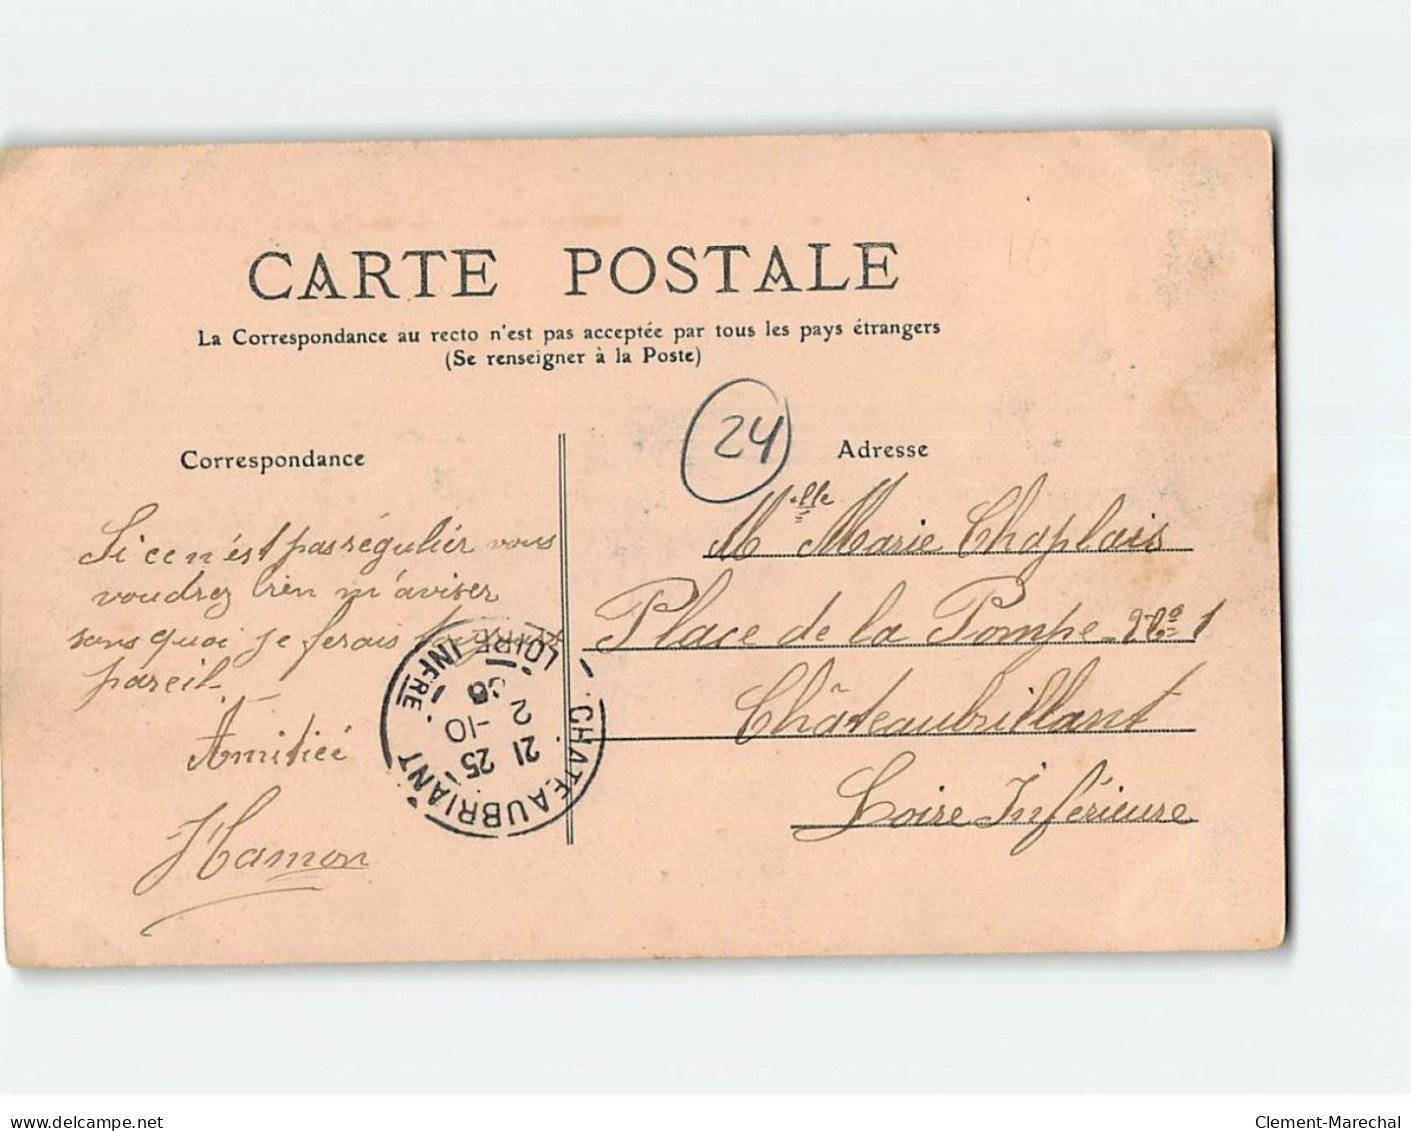 CARTE POSTALE
La Correspondance au recto n'est pas acceptée par tous les pays étrangers
(Se renseigner à la Poste)
24
Correspondance
Adresse
Si ce n'est pas régulier vous
voudrez bien m'aviser
sans quoi je ferais toujours
pareil.
Amitiée
JHamon
Melle Marie Chaplais
Place de la Pompe No 1
Châteaubrillant
Loire Inférieure
CHATEAUBRIANT
LOIRE INFRE
21 25
2 -10
06
10
www.delcampe.net
Clement-Marechal